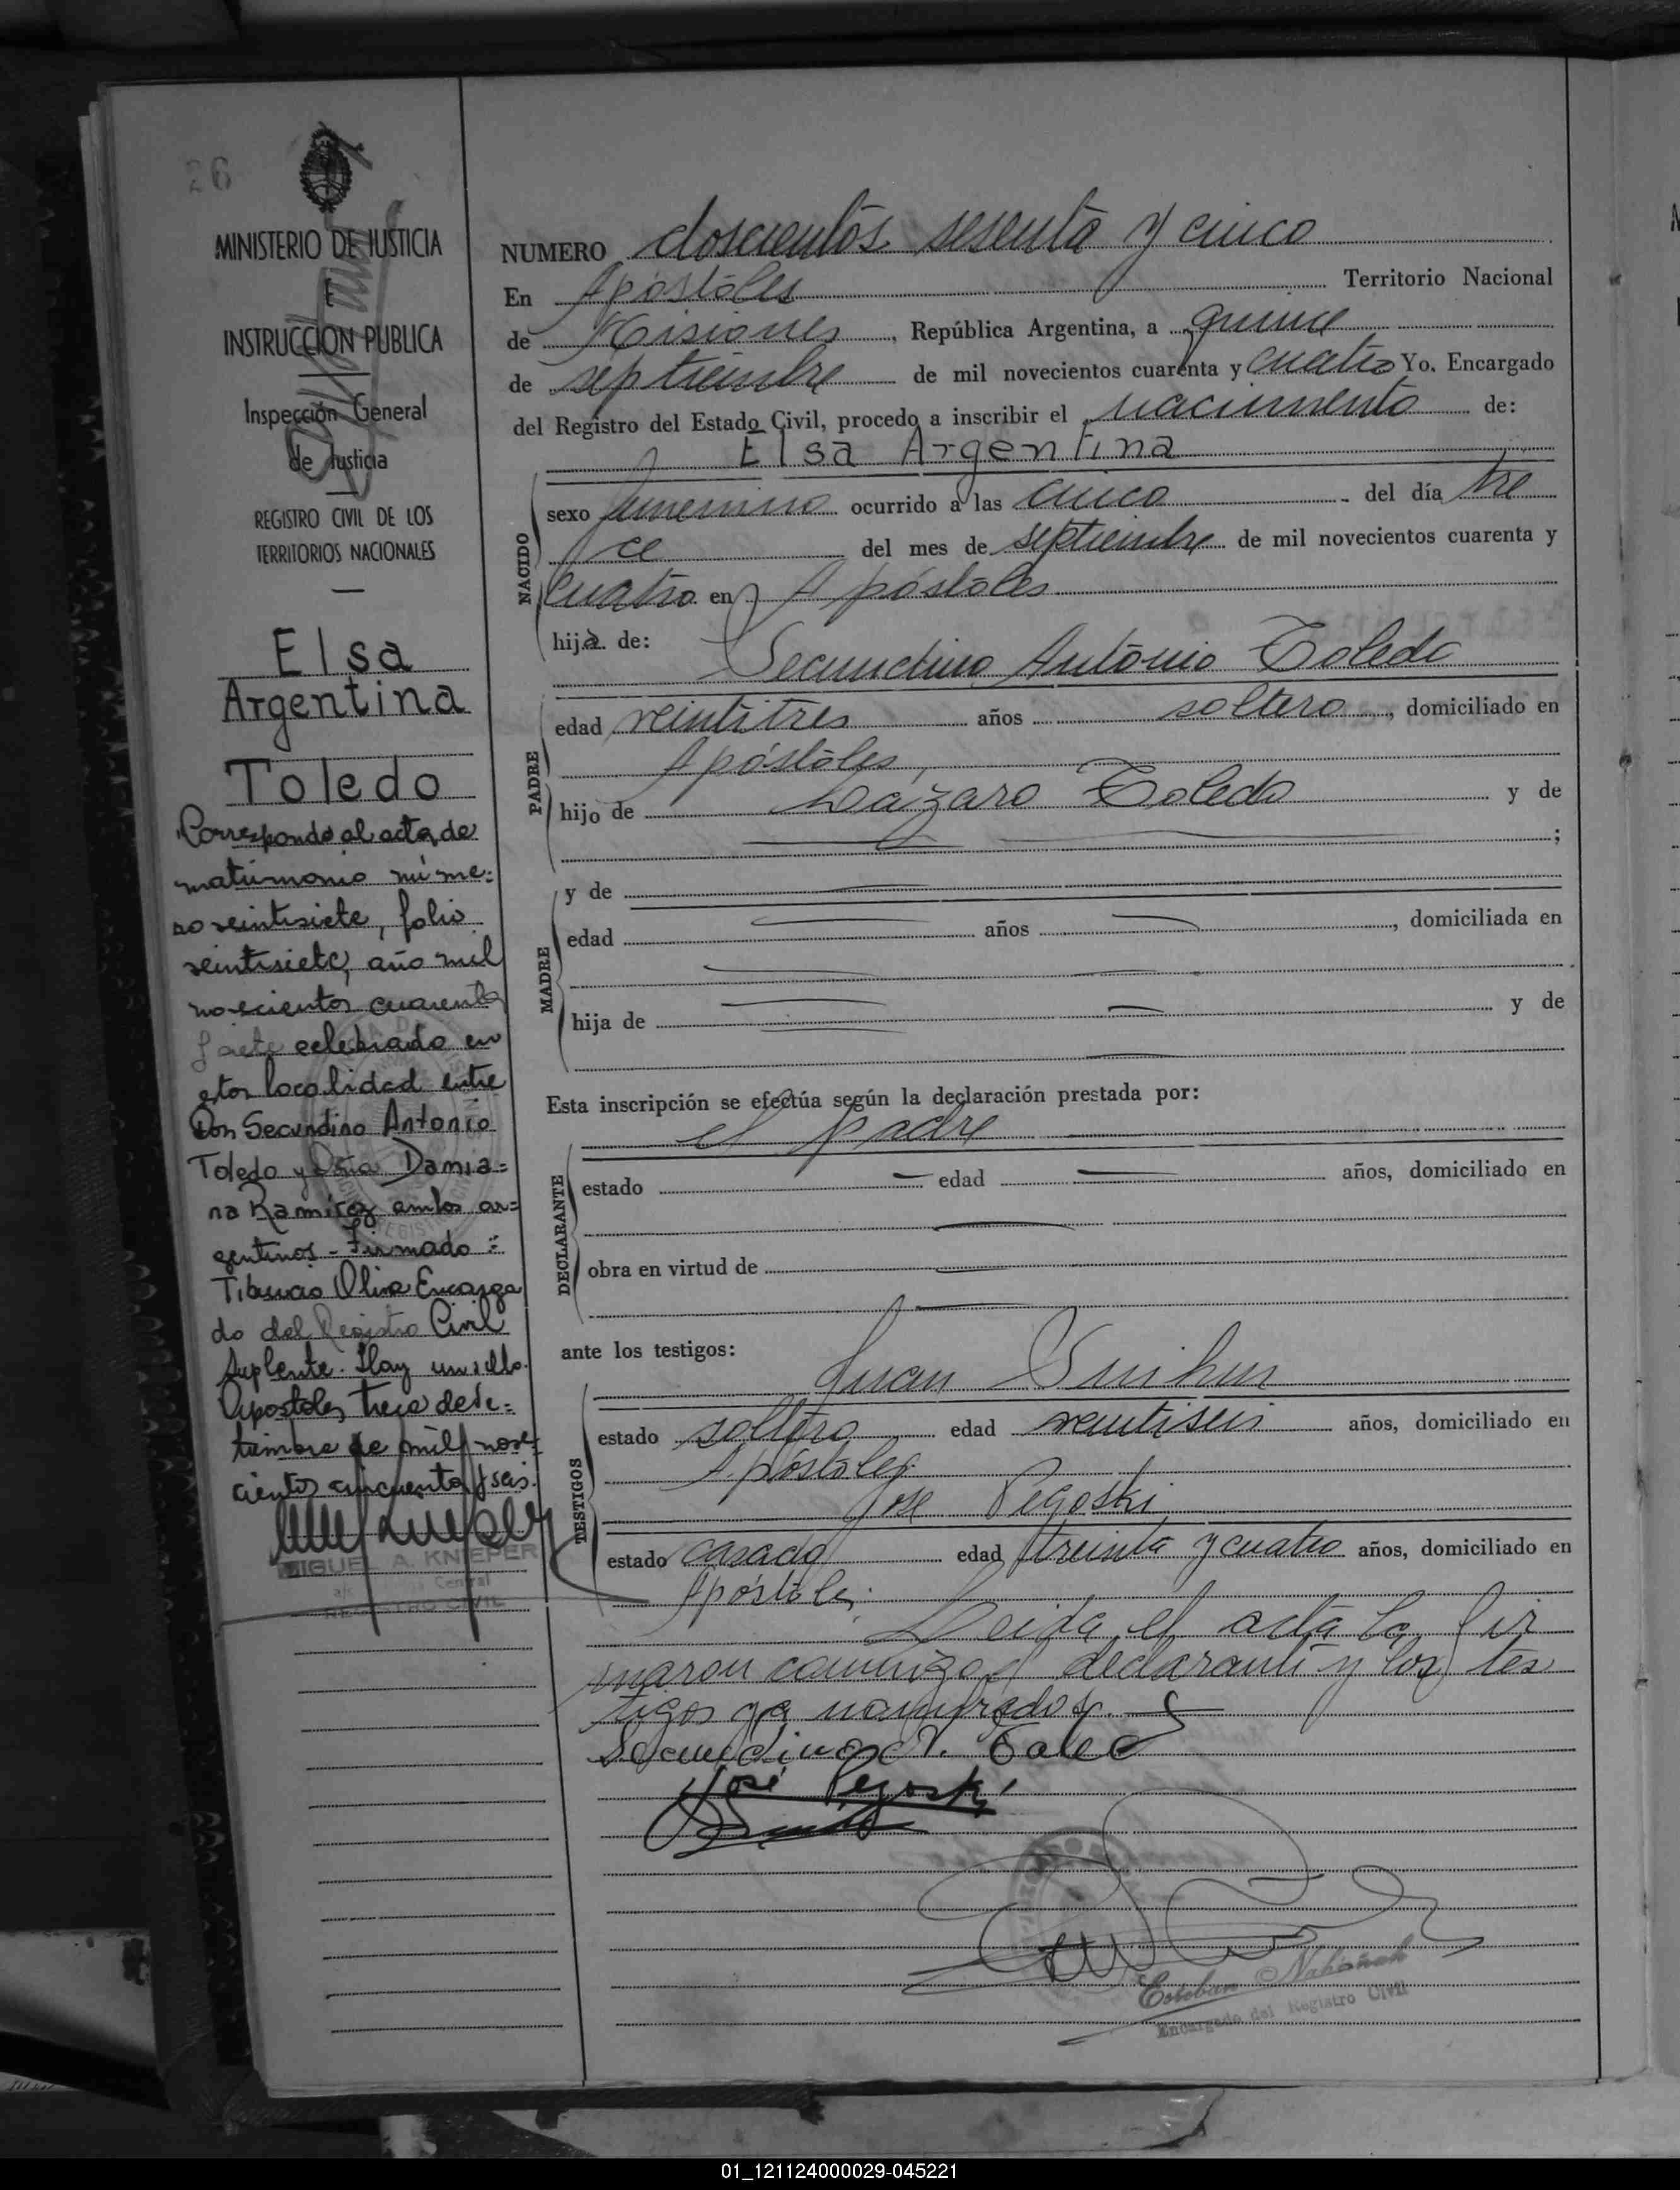 26
MINISTERIO DE JUSTICIA
E
INSTRUCCION PUBLICA
Inspección General
de Justicia
REGISTRO CIVIL DE LOS
TERRITORIOS NACIONALES
Elsa
Argentina
Toledo
Corresponde al acta de
matrimonio núme=
ro veintisiete, folio
veintisiete, año mil
novecientos cuarenta
y siete celebrado en
esta localidad entre
Don Secundino Antonio
Toledo y Doña Damia=
na Ramírez ambos ar=
gentinos - Firmado =
Tiburcio Oliva Encarga
do del Registro Civil
Suplente. Hay un sello.
Apostoles, trece de se=
tiembre de mil nove=
cientos cincuenta y seis.
MIGUEL A. KNIEPER
REGISTRO CIVIL
NUMERO doscientos sesenta y cinco
En Apóstoles Territorio Nacional
de Misiones, República Argentina, a quince
de septiembre de mil novecientos cuarenta y cuatro Yo. Encargado
del Registro del Estado Civil, procedo a inscribir el nacimiento de:
Elsa Argentina
NACIDO
sexo femenino ocurrido a las cinco del día tre
ce del mes de septiembre de mil novecientos cuarenta y
cuatro en Apóstoles
hija de:
Secundino Antonio Toledo
PADRE
edad veintitres años soltero, domiciliado en
Apóstoles,
hijo de Lázaro Toledo y de
;
MADRE
y de
edad años , domiciliada en
hija de y de
Esta inscripción se efectúa según la declaración prestada por:
el padre
DECLARANTE
estado edad años, domiciliado en
obra en virtud de
ante los testigos:
Juan
TESTIGOS
estado soltero edad veintiseis años, domiciliado en
Apóstoles
José Pegoski
estado casado edad treinta y cuatro años, domiciliado en
Apóstoles.
Leida el acta la fir
maron conmigo el declarante y los tes
tigos ya nombrados.
Secundino A. Toledo
José Pegoski
Esteban
Encargado del Registro Civil
01_121124000029-045221